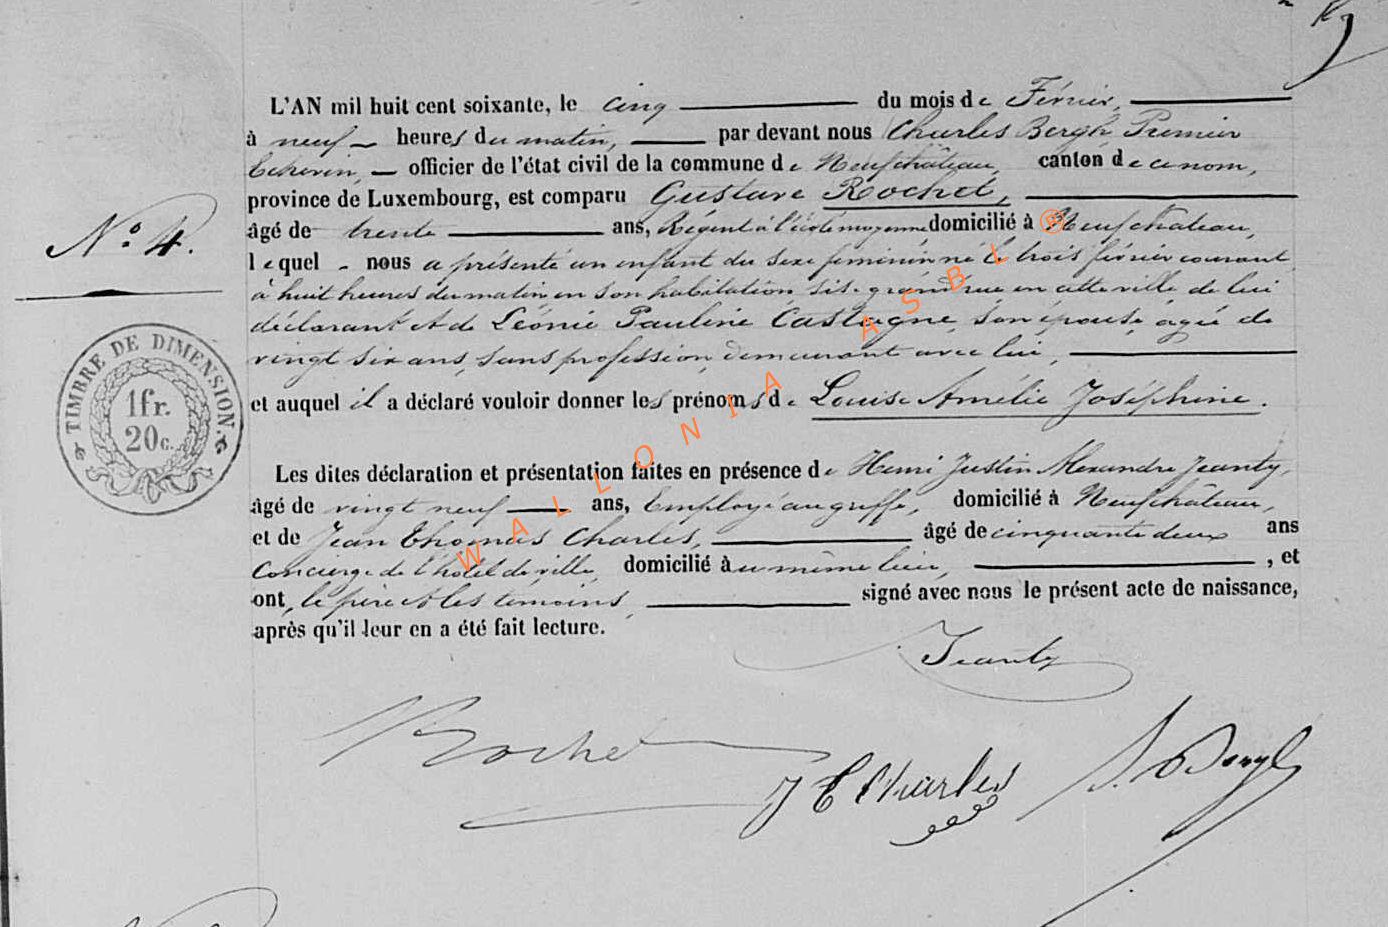 L'AN mil huit cent soixante, le cinq du mois de Février,
à neuf heures du matin, par devant nous Charles Bergh Premier
Echevin, officier de l'état civil de la commune de Neufchâteau, canton de ce nom,
province de Luxembourg, est comparu Gustave Rochet,
âgé de trente ans, Régent à l'école moyenne domicilié à Neufchâteau,
lequel nous a présenté un enfant du sexe féminin né le trois février courant
à huit heures du matin en son habitation sise grand rue en cette ville de lui
déclarant et de Léonie Pauline Castagne, son épouse, agée de
vingt six ans, sans profession, demeurant avec lui,
et auquel il a déclaré vouloir donner les prénoms de Louise Amélie Joséphine.
N° 4.
TIMBRE DE DIMENSION.
1fr.
20c.
Les dites déclaration et présentation faites en présence de Henri Justin Alexandre Jeanty,
âgé de vingt neuf ans, Employé au greffe, domicilié à Neufchâteau,
et de Jean Thomas Charles, âgé de cinquante deux ans
Concierge de l'hôtel de ville, domicilié au même lieu, , et
ont, le père et les temoins, signé avec nous le présent acte de naissance,
après qu'il leur en a été fait lecture.
Jeanty
Rochet
J T Charles
WALLONIA ASBL ®